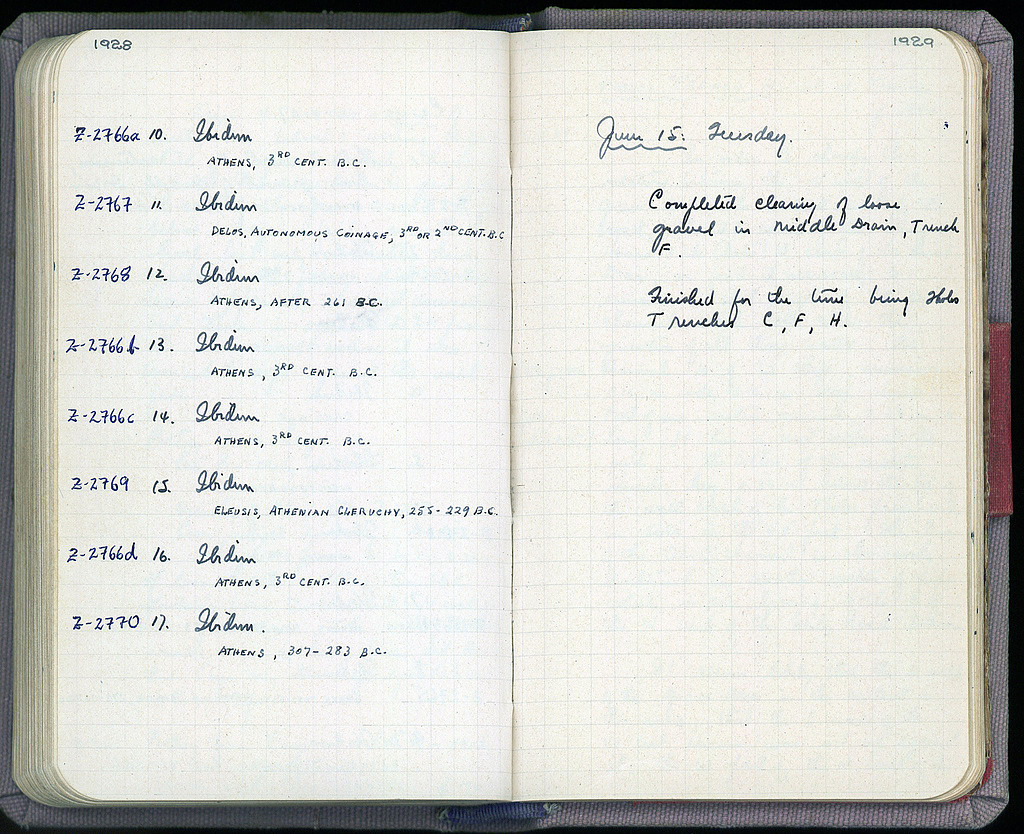 1928
Z-2766a 10. Ibidem
ATHENS, 3RD CENT. B.C.
Z-2767 11. Ibidem
DELOS, AUTONOMOUS COINAGE, 3RD OR 2ND CENT. B.C
Z-2768 12. Ibidem
ATHENS, AFTER 261 B.C.
Z-2766b 13. Ibidem
ATHENS, 3RD CENT. B.C.
Z-2766c 14. Ibidem
ATHENS, 3RD CENT. B.C.
Z-2769 15. Ibidem
ELEUSIS, ATHENIAN CLERUCHY, 255-229 B.C.
Z-2766d 16. Ibidem
ATHENS, 3RD CENT. B.C.
Z-2770 17. Ibidem.
ATHENS, 307-283 B.C.
1929
June 15: Tuesday.
Completed clearing of loose
gravel in middle Drain, Trench
F.
Finished for the time being Tholos
Trenches C, F, H.